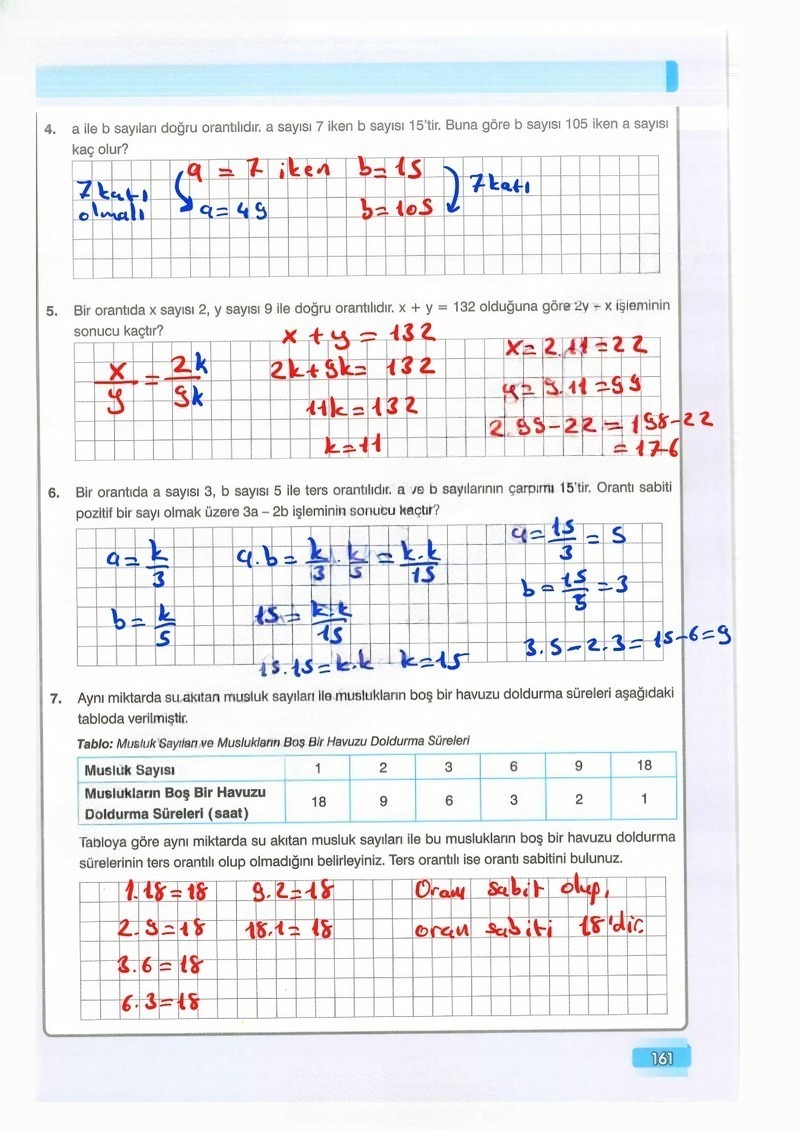 4. a ile b sayıları doğru orantılıdır. a sayısı 7 iken b sayısı 15'tir. Buna göre b sayısı 105 iken a sayısı
kaç olur?
a = 7 iken b = 15
7 katı olmalı a = 49 b = 105 7 katı
5. Bir orantıda x sayısı 2, y sayısı 9 ile doğru orantılıdır. x + y = 132 olduğuna göre 2y - x işleminin
sonucu kaçtır?
x + y = 132
x/y = 2k/9k
2k + 9k = 132
11k = 132
k = 11
x = 2.11 = 22
y = 9.11 = 99
2.99 - 22 = 198 - 22
= 176
6. Bir orantıda a sayısı 3, b sayısı 5 ile ters orantılıdır. a ve b sayılarının çarpımı 15'tir. Orantı sabiti
pozitif bir sayı olmak üzere 3a – 2b işleminin sonucu kaçtır?
a = k/3
b = k/5
a.b = k/3 . k/5 = k.k/15
15 = k.k/15
15.15 = k.k k = 15
a = 15/3 = 5
b = 15/5 = 3
3.5 - 2.3 = 15 - 6 = 9
7. Aynı miktarda su akıtan musluk sayıları ile muslukların boş bir havuzu doldurma süreleri aşağıdaki
tabloda verilmiştir.
Tablo: Musluk Sayıları ve Muslukların Boş Bir Havuzu Doldurma Süreleri
Musluk Sayısı 1 2 3 6 9 18
Muslukların Boş Bir Havuzu
Doldurma Süreleri (saat) 18 9 6 3 2 1
Tabloya göre aynı miktarda su akıtan musluk sayıları ile bu muslukların boş bir havuzu doldurma
sürelerinin ters orantılı olup olmadığını belirleyiniz. Ters orantılı ise orantı sabitini bulunuz.
1.18 = 18 9.2 = 18 Oranı sabit olup,
2.9 = 18 18.1 = 18 oran sabiti 18'dir.
3.6 = 18
6.3 = 18
161